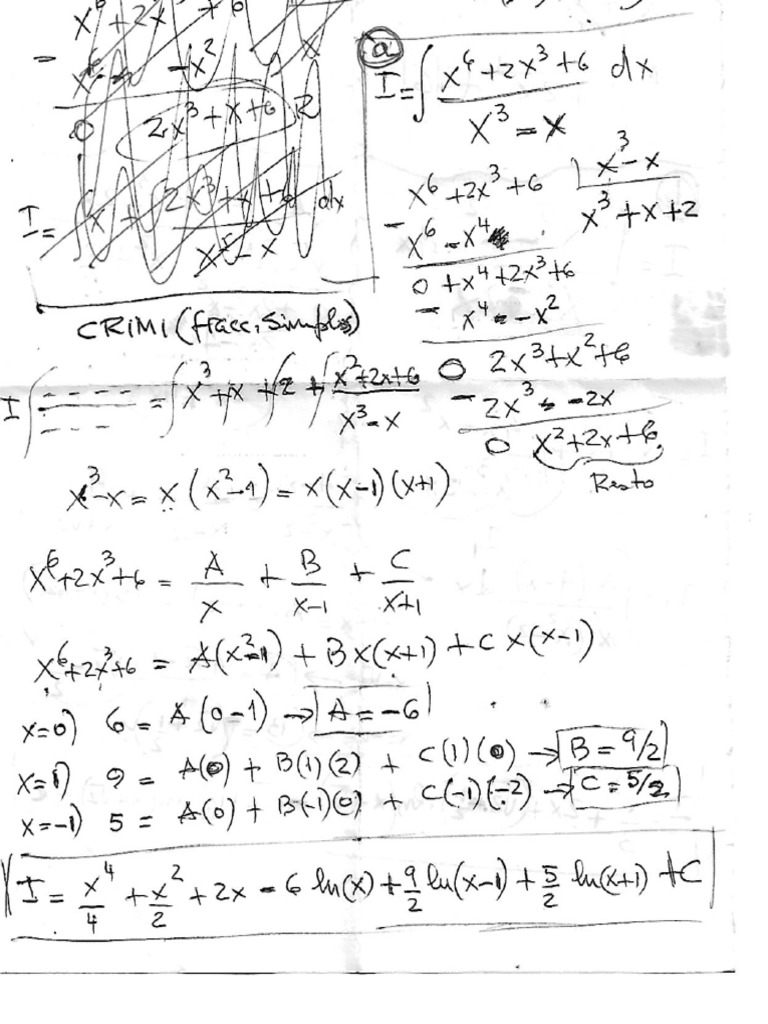 x⁶ + 2x³ + 6
-x²
0 2x³+x+6 R
I = ∫ x + ∫ 2x³+x+6 dx
x³-x
CRIMI (fracc. simples)
ⓐ
I = ∫ x⁶+2x³+6 dx
x³-x
x⁶+2x³+6 | x³-x
- x⁶-x⁴ x³+x+2
0+x⁴+2x³+6
- x⁴ - x²
0 2x³+x²+6
- 2x³ - 2x
0 x²+2x+6
Resto
I ∫ ---- = ∫ x³+∫x+∫2+∫ x²+2x+6
--- x³-x
x³-x = x(x²-1) = x(x-1)(x+1)
x⁶+2x³+6 = A/x + B/x-1 + C/x+1
x⁶+2x³+6 = A(x²-1) + Bx(x+1) + Cx(x-1)
x=0) 6 = A(0-1) → A = -6
x=1) 9 = A(0) + B(1)(2) + C(1)(0) → B = 9/2
x=-1) 5 = A(0) + B(-1)(0) + C(-1)(-2) → C = 5/2
I = x⁴/4 + x²/2 + 2x - 6 ln(x) + 9/2 ln(x-1) + 5/2 ln(x+1) + C